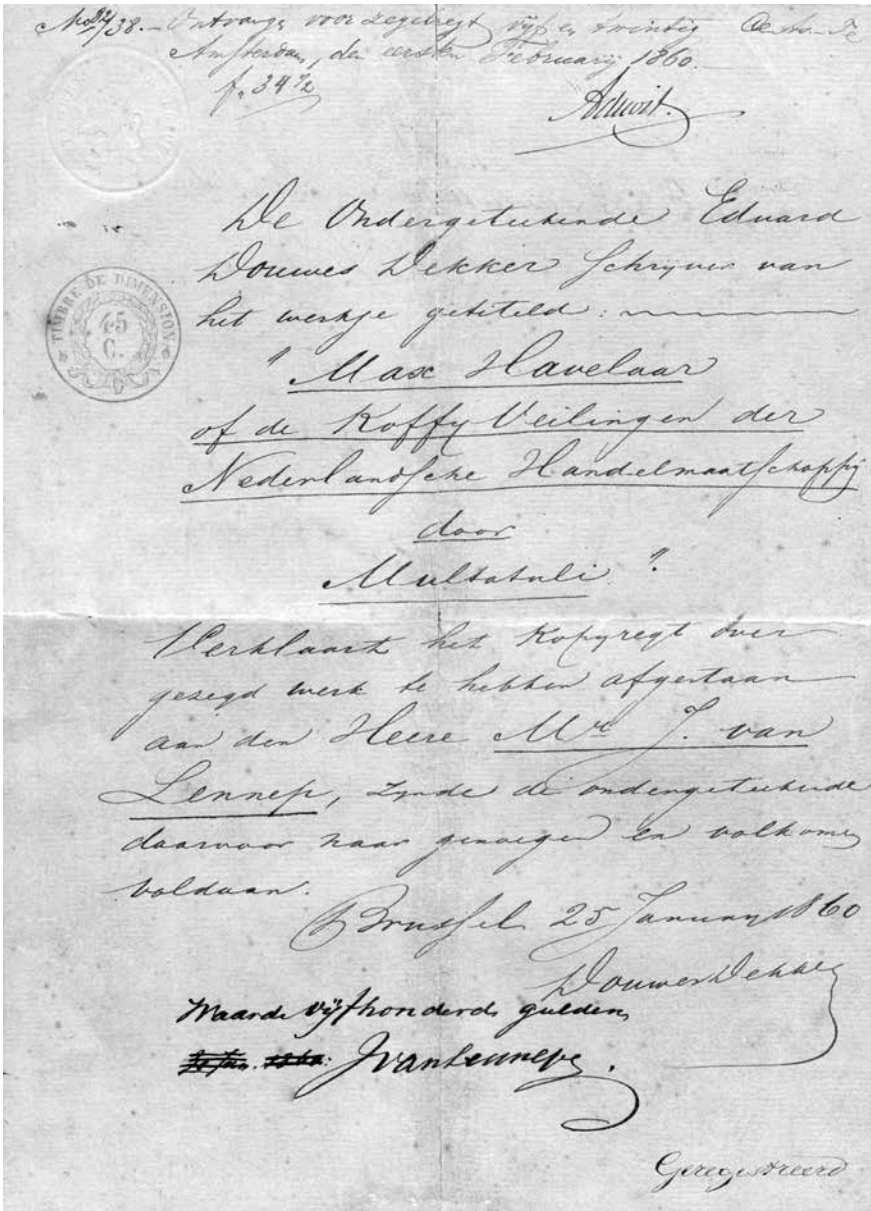 Ontvangen voor zegelregt vijf en twintig
Amsterdam, den eersten Februarij 1860.
f. 34 1/2
De Ondergeteekende Eduard
Douwes Dekker Schryver van
het werkje getiteld:
" Max Havelaar
of de Koffy Veilingen der
Nederlandsche Handelmaatschappij
door
Multatuli ".
Verklaart het Kopyregt over
gezegd werk te hebben afgestaan
aan den Heere Mr. J. van
Lennep, zynde de ondergeteekende
daarvoor naar genoegen en volkomen
voldaan.
Brussel 25 January 1860
Douwes Dekker
Waarde vijfhonderd gulden
JvanLennep.
Geregistreerd
TIMBRE DE DIMENSION
45
C.